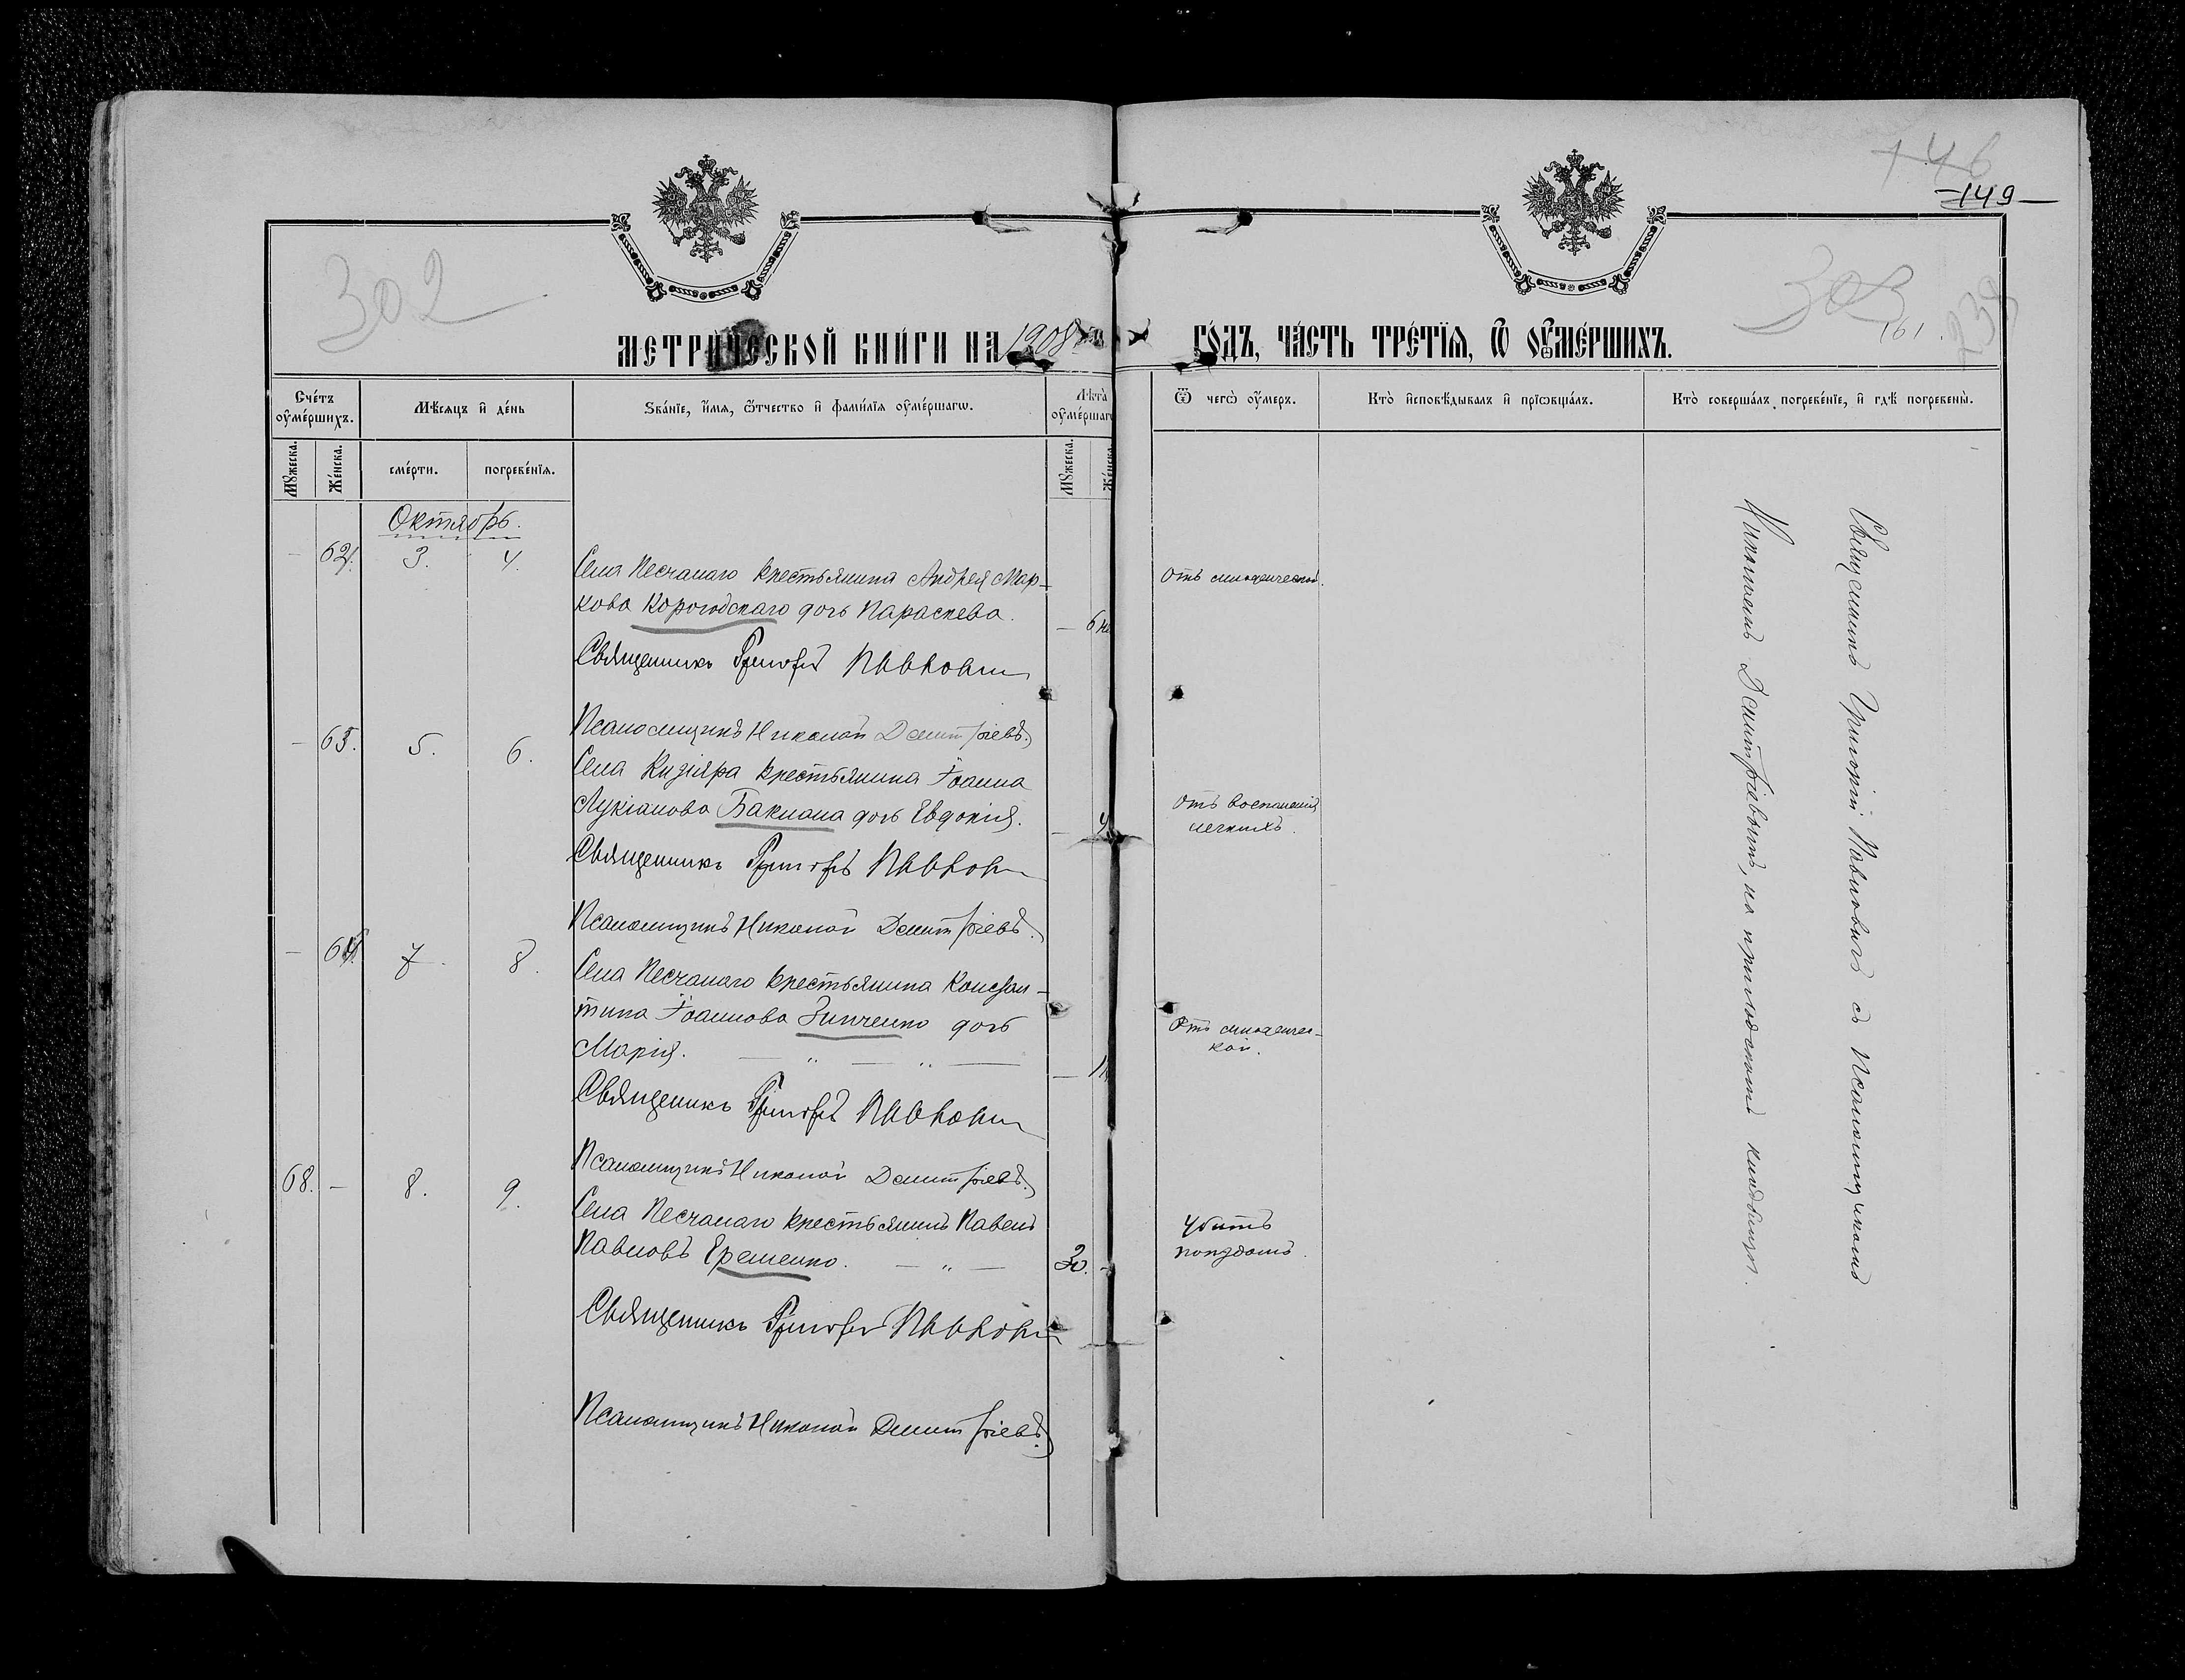 146
-149-
302
303
161
239
МЕТРИЧЕСКОЙ КНИГИ НА 1908
ГОДЪ, ЧАСТЬ ТРЕТІЯ, Ѿ ОУМЕРШИХЪ.
Счетъ оумершихъ.
Мѣсяцъ и день
Званіе, имя, отчество и фамилія оумершагѡ.
Лѣта оумершаг
Ѿ чегѡ оумеръ.
Кто исповѣдывалъ и пріѡбщалъ.
Кто совершалъ погребеніе, и гдѣ погребены.
Мужеска.
Женска.
смерти.
погребенія.
Мужеска.
Женска
Октябрь.
- 62. 3. 4.
Села Песчанаго крестьянина Андрея Мар-
кова Корогодскаго дочь Параскева.
- 6
Отъ
Священникъ Григорій
- 63. 5. 6.
Псаломщикъ Николай Демитріевъ.
Села Кизіяра крестьянина Іоанна
Лукіанова Баклана дочь Евдокія.
Отъ воспаленія
легкихъ.
Священникъ Григорій
Псаломщикъ Николай Демитріевъ.
- 64. 7. 8.
Села Песчанаго крестьянина Констан-
тина Іоаннова Зинченко дочь
Марія. — „ — „ —
Отъ
кой.
Священникъ Григорій
Псаломщикъ Николай Демитріевъ.
68. - 8. 9.
Села Песчанаго крестьянинъ Павелъ
Павловъ Еременко. — „ —
30. -
Убитъ
поѣздомъ.
Священникъ Григорій
Псаломщикъ Николай Демитріевъ.
Священникъ Григорій Павловичъ съ Псаломщикомъ
Николаемъ Демитріевымъ, на приходскомъ кладбищѣ.